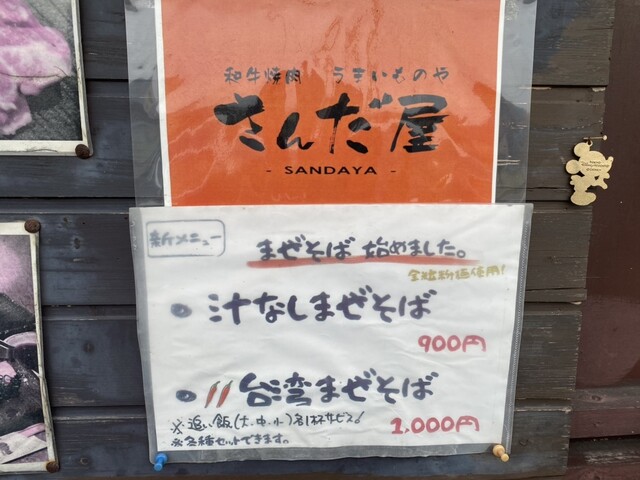 和牛焼肉 うまいものや
さんだ屋
- SANDAYA -
新メニュー
まぜそば 始めました。
全粒粉麺使用!
● 汁なしまぜそば
900円
● 台湾まぜそば
1,000円
※追い飯(大、中、小)別杯サービス!
※各種セットできます。